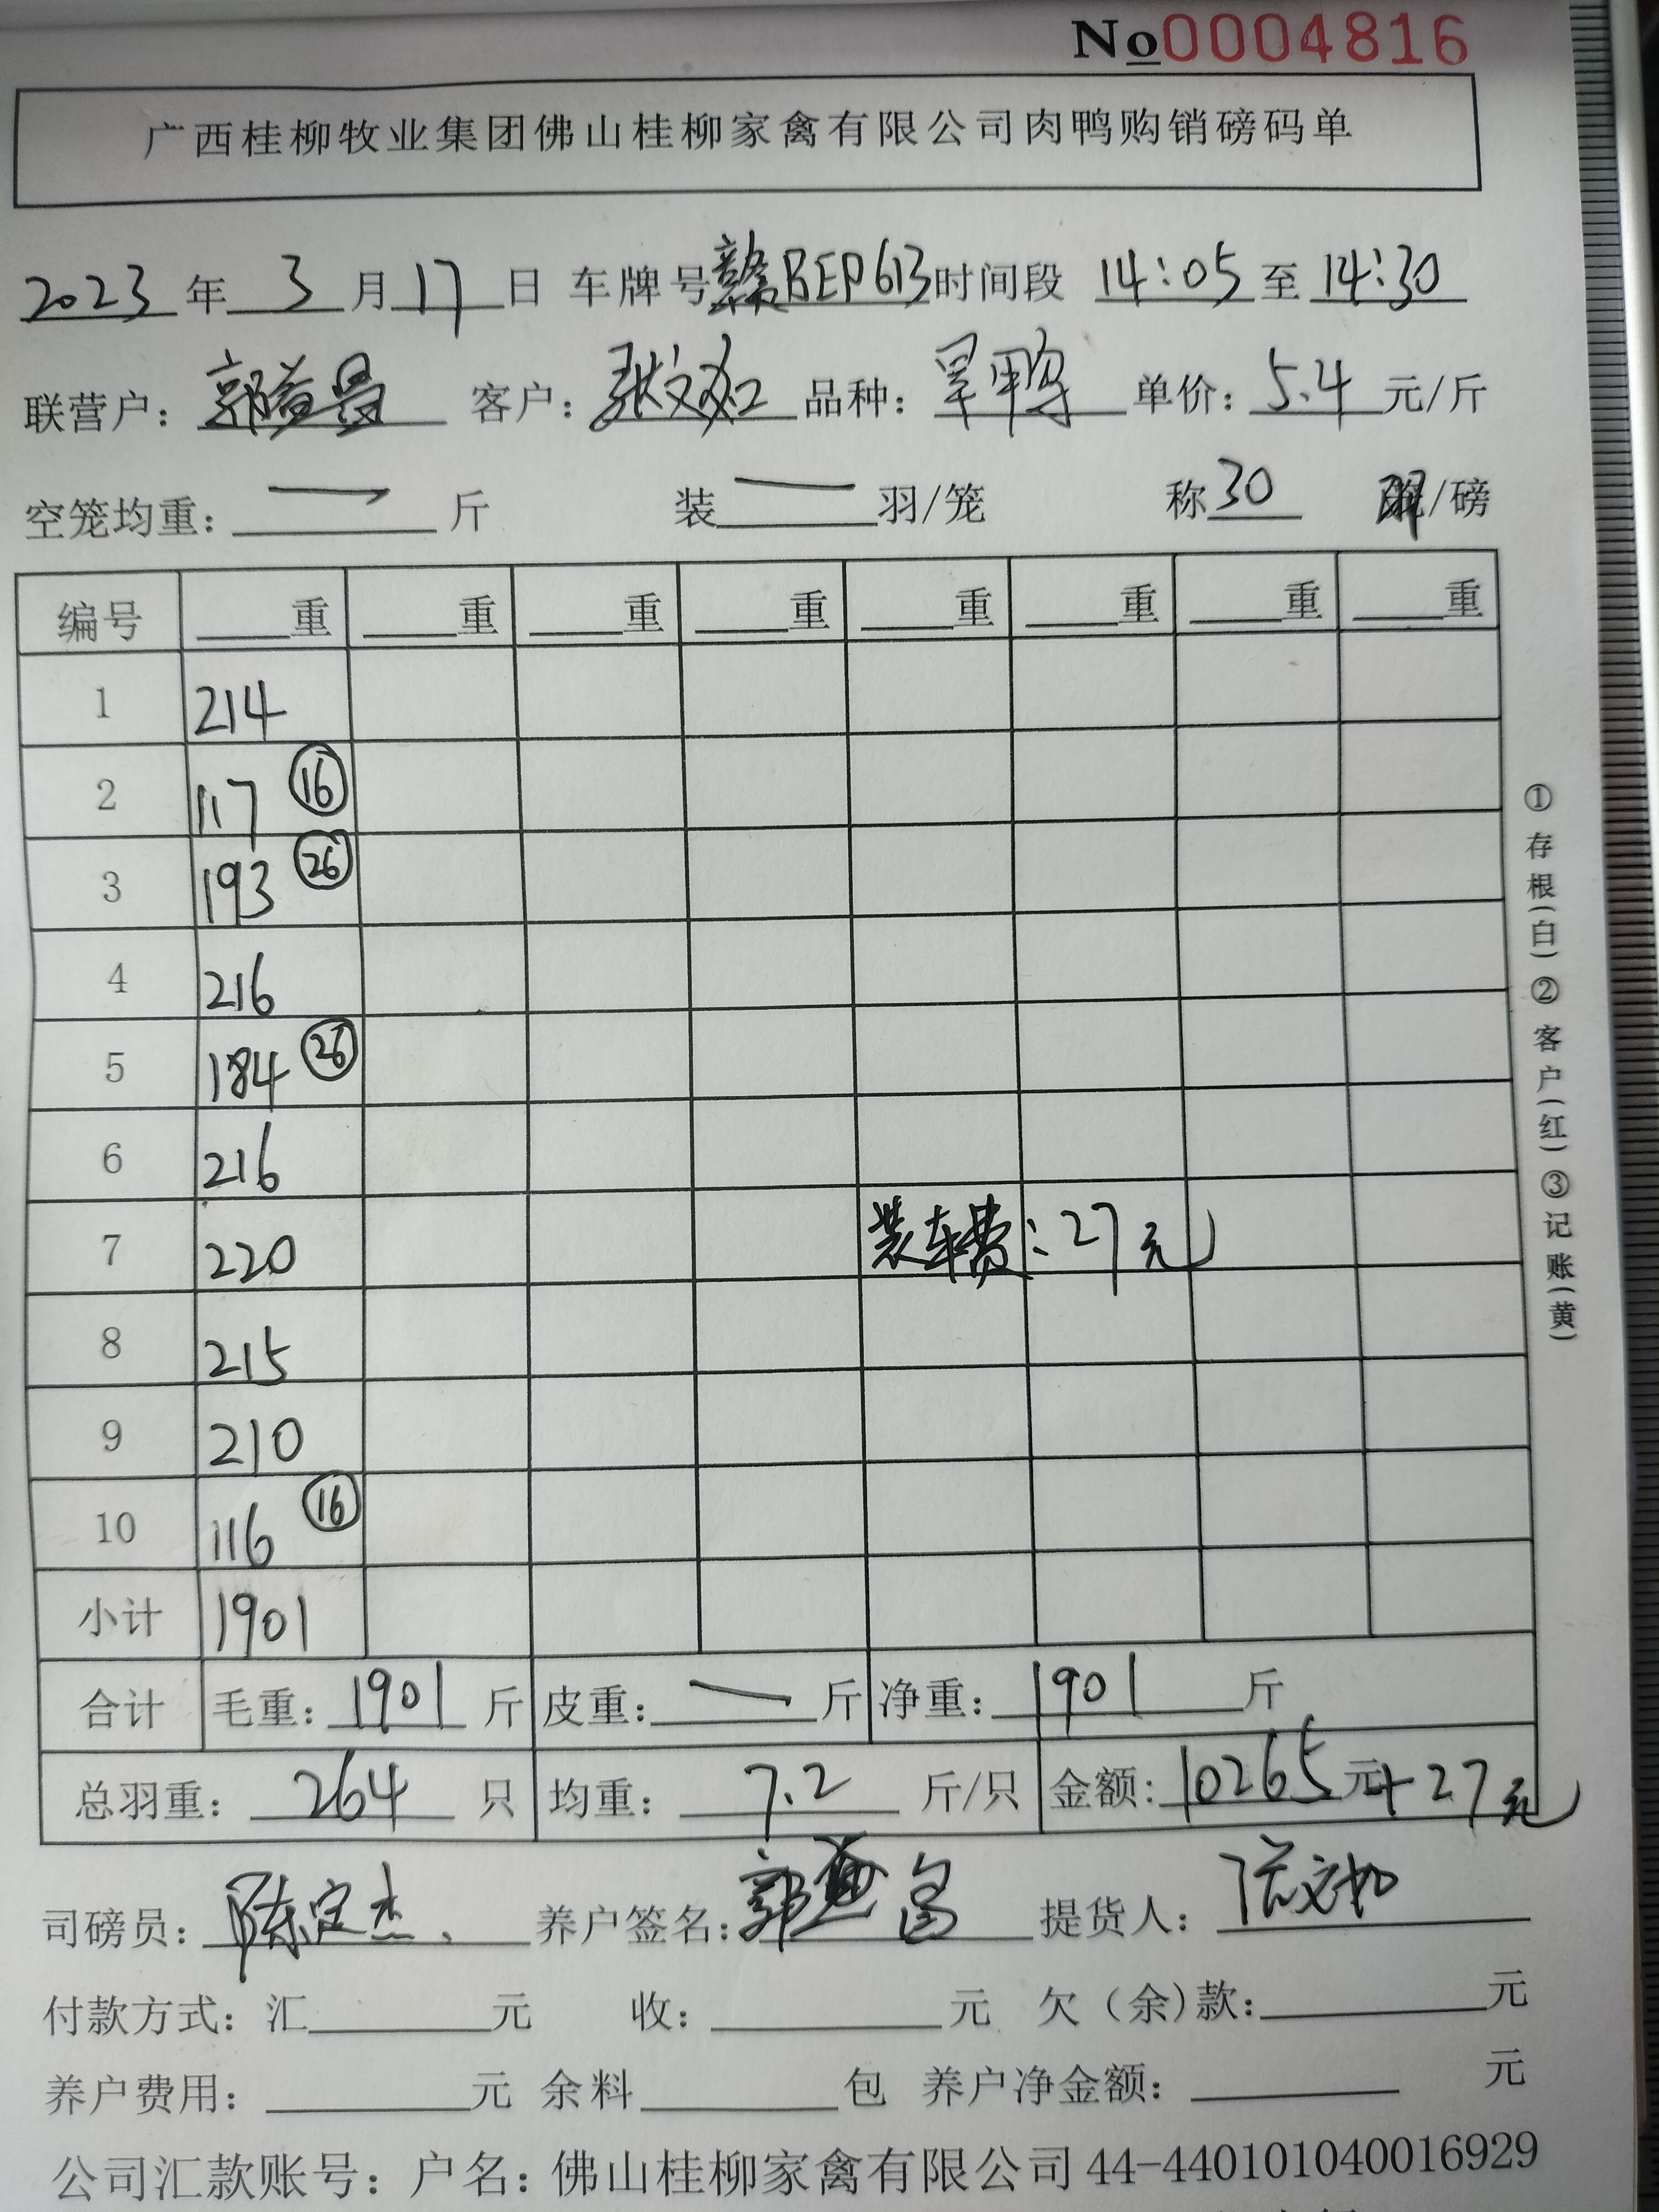 No0004816
广西桂柳牧业集团佛山桂柳家禽有限公司肉鸭购销磅码单
2023 年 3 月 17 日 车牌号 赣BEP613 时间段 14:05 至 14:30
联营户: 郭益昌 客户: 张文如 品种: 旱鸭 单价: 5.4 元/斤
空笼均重: 一 斤 装 一 羽/笼 称 30 /磅
编号 重 重 重 重 重 重 重 重
1 214
2 117 16
3 193 26
4 216
5 184 26
6 216
7 220 装车费:27元
8 215
9 210
10 116 16
小计 1901
合计 毛重: 1901 斤 皮重: 一 斤 净重: 1901 斤
总羽重: 264 只 均重: 7.2 斤/只 金额: 10265 元+27元
司磅员: 陈定杰 养户签名: 郭益昌 提货人: 张文如
付款方式: 汇 元 收: 元 欠(余)款: 元
养户费用: 元 余料 包 养户净金额: 元
公司汇款账号: 户名: 佛山桂柳家禽有限公司 44-440101040016929
①存根(白)②客户(红)③记账(黄)